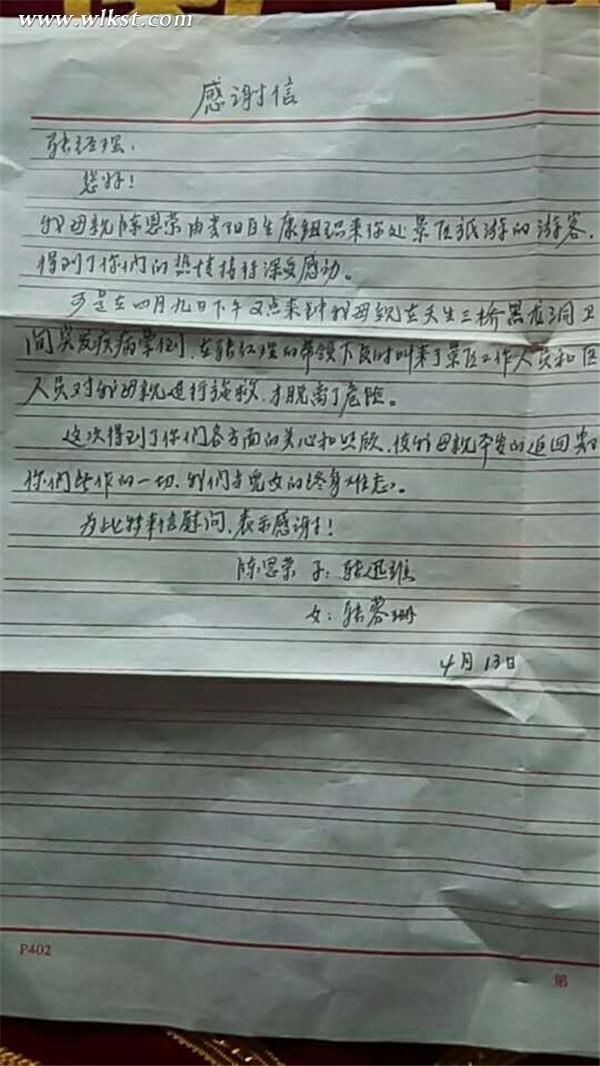 www.wlkst.com
感谢信
张经理.
您好!
我母亲陈恩荣由贵阳百生康组织来你处景区旅游的游客.
得到了你们的热情招待深受感动。
可是在四月九日下午2点来钟我母亲在天生三桥黑龙洞卫
间突发疾病晕倒,在张经理的带领下及时叫来了景区工作人员和医
人员对我母亲进行施救,才脱离了危险。
这次得到了你们各方面的关心和照顾,使我母亲平安的返回贵
你们所作的一切,我们当儿女的终身难忘。
为此特来信慰问,表示感谢!
陈恩荣 子:张
女:张蓉珊
4月13日
P402
第